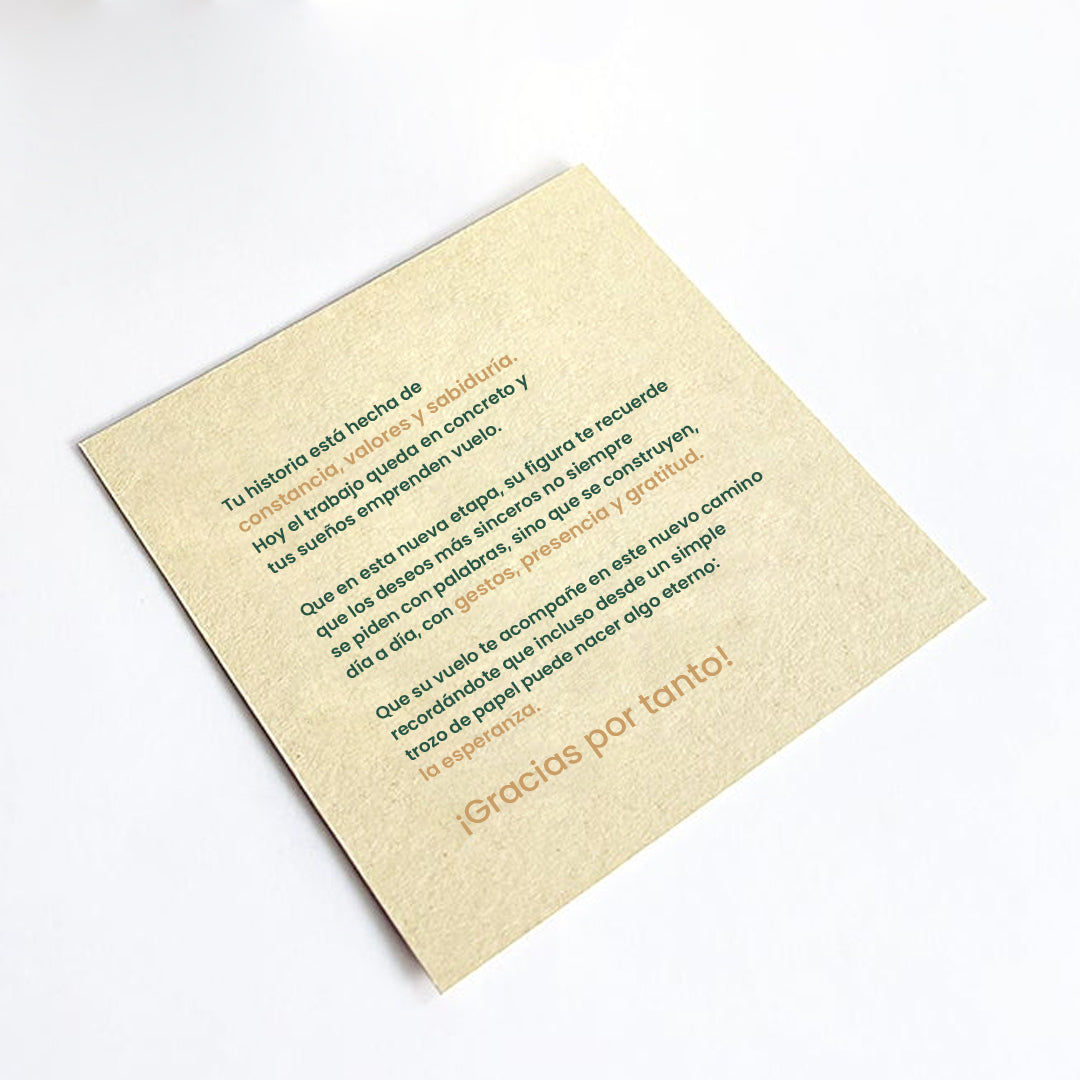 Tu historia está hecha de
constancia, valores y sabiduría.
Hoy el trabajo queda en concreto y
tus sueños emprenden vuelo.
Que en esta nueva etapa, su figura te recuerde
que los deseos más sinceros no siempre
se piden con palabras, sino que se construyen,
día a día, con gestos, presencia y gratitud.
Que su vuelo te acompañe en este nuevo camino
recordándote que incluso desde un simple
trozo de papel puede nacer algo eterno:
la esperanza.
¡Gracias por tanto!